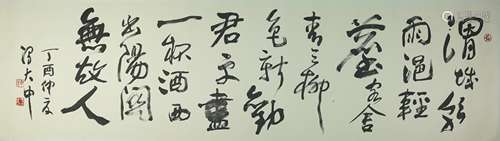 渭城朝
雨浥輕
塵客舍
青々柳
色新勸
君更盡
一杯酒西
出陽關
無故人
丁酉仲夏
冯大中